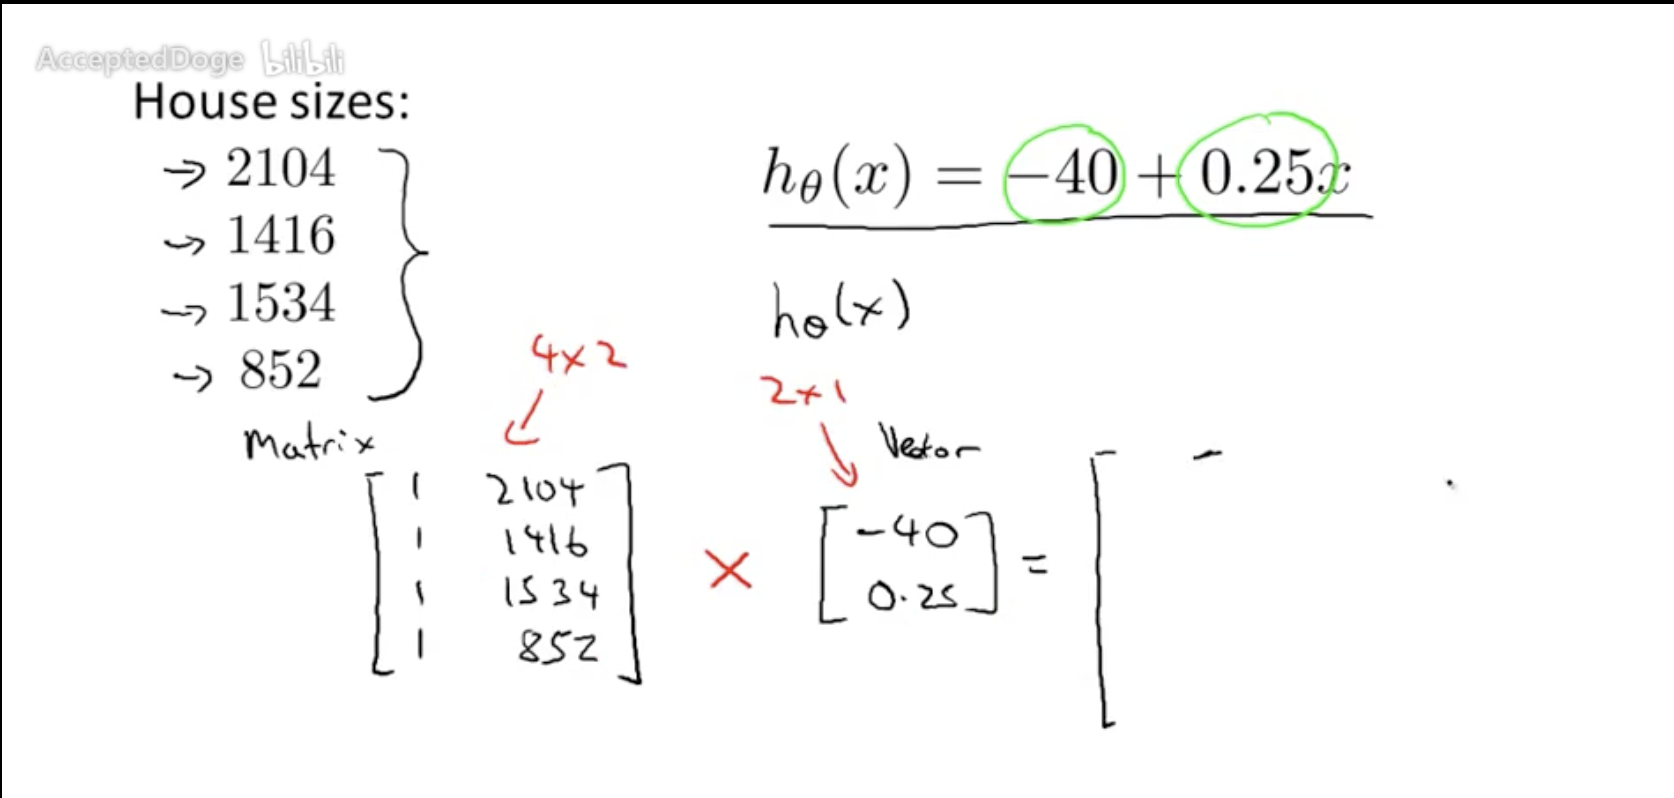 AcceptedDoge bilibili
House sizes:
→ 2104
→ 1416
→ 1534
→ 852
hθ(x) = −40 + 0.25x
hθ(x)
4×2
2×1
Matrix
Vector
[1 2104
1 1416
1 1534
1 852]
×
[−40
0.25]
= [ −